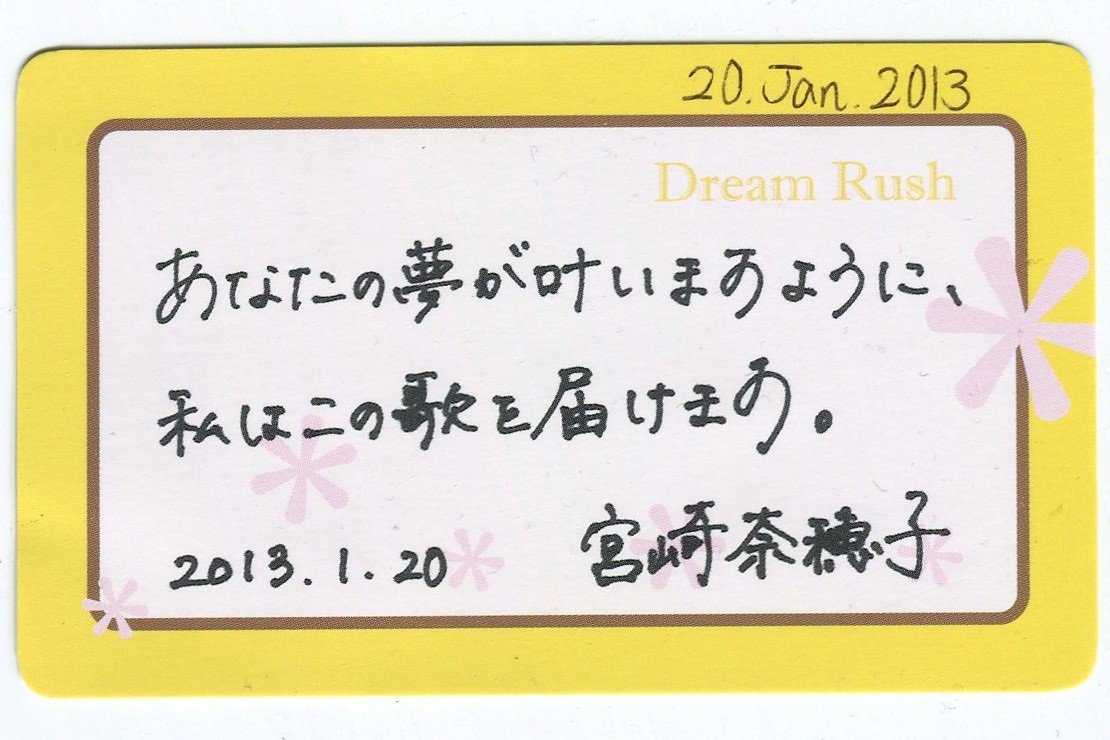 20.Jan.2013
Dream Rush
あなたの夢が叶いますように、
私はこの歌を届けます。
2013.1.20 宮崎奈穂子